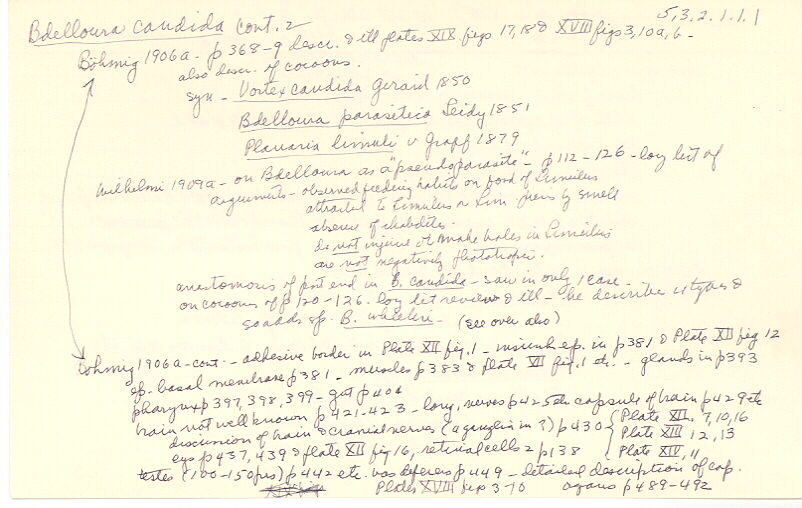 Bdelloura candida cont. 2
5,3.2.1.1.1
Böhmig 1906a - p 368-9 descr. & ill plates XIX figs 17,18 & XVIII figs 3,10a,6-
also descr. of cocoons.
syn - Vortex candida Gerard 1850
Bdelloura parasitica Leidy 1851
Planaria limuli v Graff 1879
Wilhelmi 1909a - on Bdelloura as a "pseudoparasite" - p 112-126 - long list of
arguments - observed feeding habits on food of Limulus
attracted to Limulus or Lim. by smell
absence of rhabdites.
do not injure or make holes in Limulus
are not negatively phototropic.
anastomosis of post end in B. candida - saw in only 1 case.
on cocoons of p 120-126. long lit review & ill - he describes 4 types &
so adds sp. B. wheeleri - (see over also)
Böhmig 1906a - cont. - adhesive border in Plate XII fig. 1 - in p 381 & Plate XII fig 12
ep - basal membrane p 381 - muscles p 383 & plate VII fig. 1 etc. - glands in p 393
pharynx p 397, 398, 399 - gut p 404
brain not well known p 421-423 - long, nerves p 425 etc capsule of brain p 429 etc
discussion of brain & cranial nerves (a ganglion in ?) p 430 { Plate XII. 7,10,16
Plate XIII 12,13
Plate XIV, 11
eyes p 437, 439 & plate XII fig 16, retinal cells 2 p 138
testes (100-150 prs) p 442 etc. vas deferens p 449 - detailed description of cop.
Plates XVIII figs 3-10 organs p 489-492